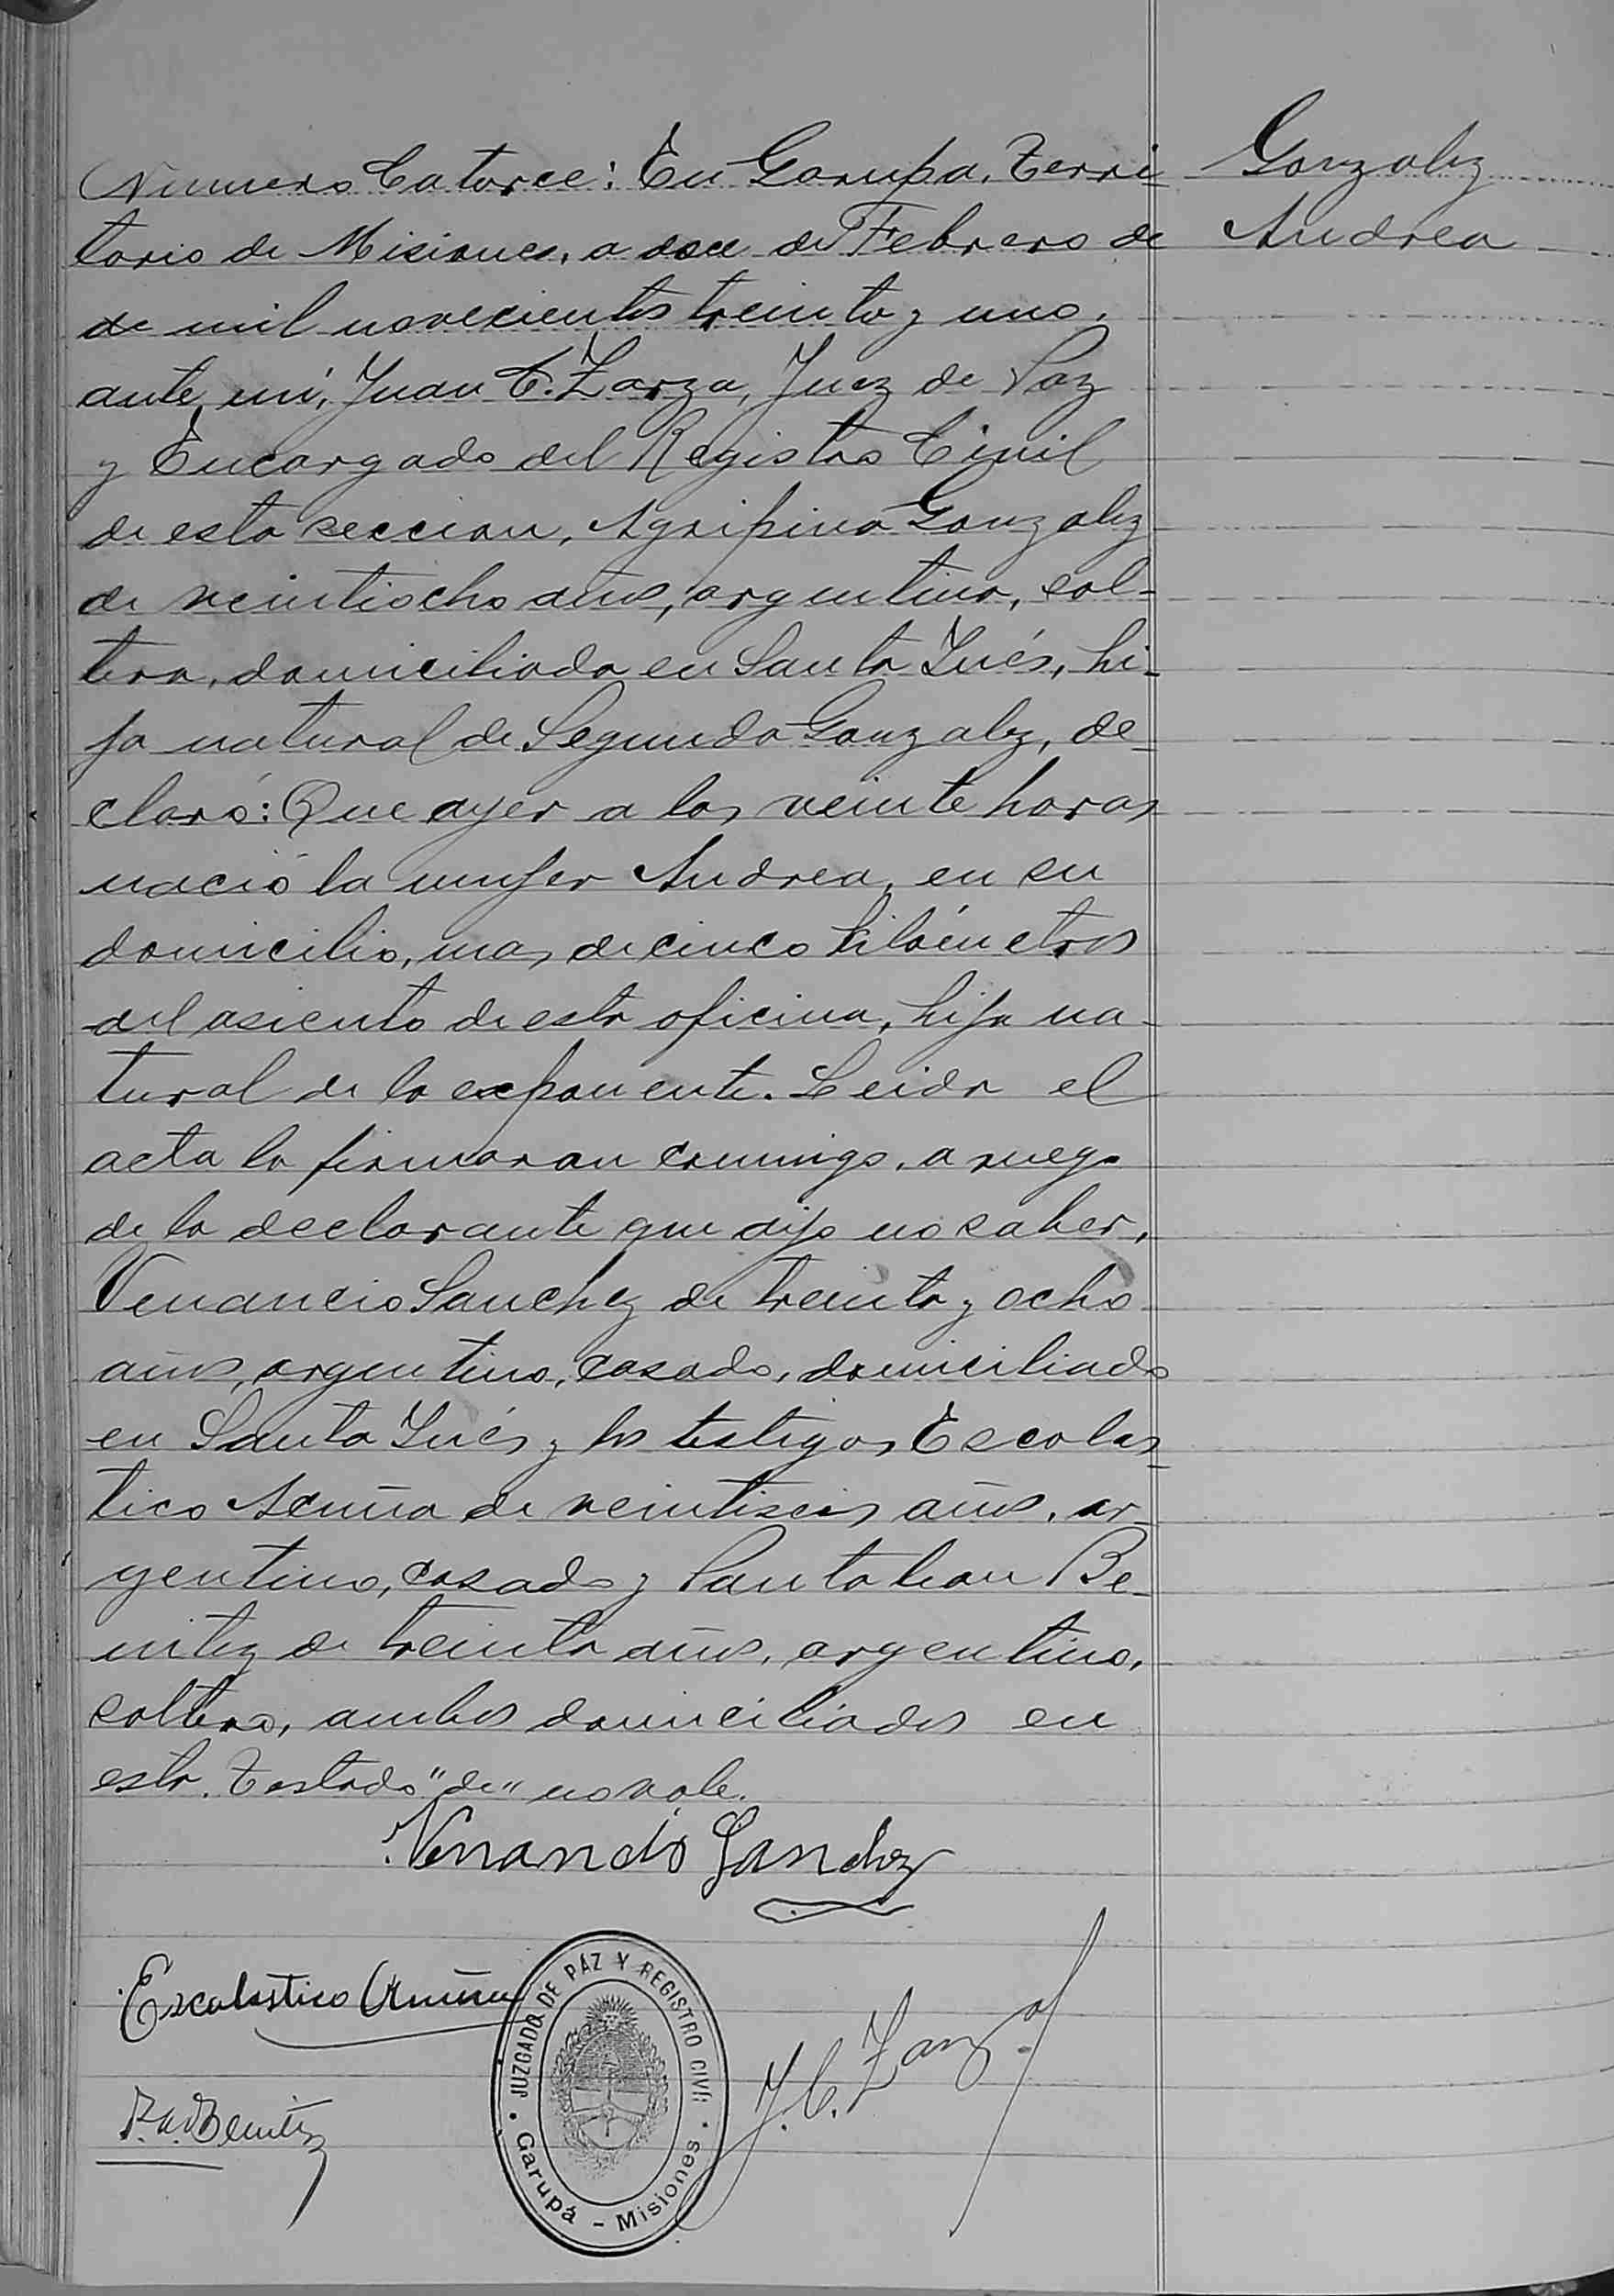 Numero Catorce: En Garupa, Terri-
torio de Misiones, a doce de Febrero de
de mil novecientos treinta y uno,
ante mi, Juan C. Zarza, Juez de Paz
y Encargado del Registro Civil
de esta seccion, Agripina Gonzalez
de veintiocho años, argentina, sol-
tera, domiciliada en Santa Inés, hi-
ja natural de Segunda Gonzalez, de-
claró: Que ayer a las veinte horas
nació la mujer Andrea, en su
domicilio, mas de cinco kilómetros
del asiento de esta oficina, hija na-
tural de la exponente. Leida el
acta la firmaran conmigo, a ruego
de la declarante que dijo no saber,
Venancio Sanchez de treinta y ocho
años, argentino, casado, domiciliado
en Santa Inés y los testigos Escolas-
tico Acuña de veintiseis años, ar-
gentino, casado y Pantaleon Be-
nitez de treinta años, argentino,
soltero, ambos domiciliados en
esta. Testado "de" no vale.
Venancio Sanchez
Escolastico Acuña
P. Benitez
J. C. Zarza
JUZGADO DE PAZ Y REGISTRO CIVIL
Garupá - Misiones
Gonzalez
Andrea